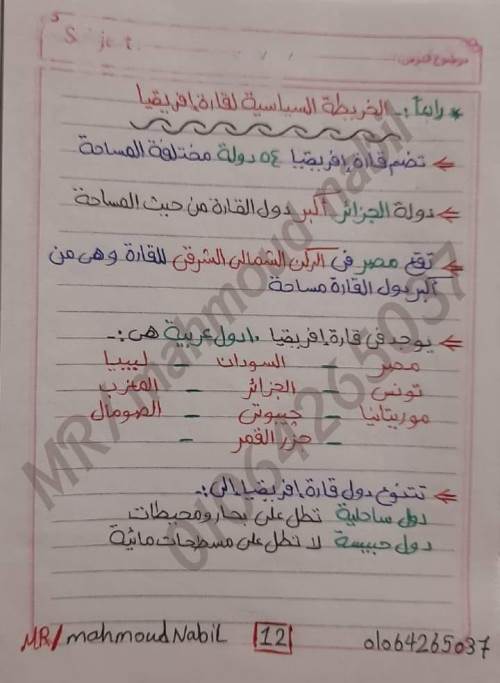 Subject:
موضوع الدرس:
* رابعاً :- الخريطة السياسية لقارة إفريقيا
تضم قارة إفريقيا ٥٤ دولة مختلفة المساحة
دولة الجزائر أكبر دول القارة من حيث المساحة
تقع مصر فى الركن الشمالى الشرقى للقارة وهى من
أكبر دول القارة مساحة
يوجد فى قارة إفريقيا ١٠ دول عربية هى :-
مصر - السودان - ليبيا
تونس - الجزائر - المغرب
موريتانيا - جيبوتى - الصومال
- جزر القمر -
تتنوع دول قارة إفريقيا إلى :-
دول ساحلية تطل على بحار ومحيطات
دول حبيسة لا تطل على مسطحات مائية
MR/ mahmoud Nabil 12 01064265037
MR/ mahmoud nabil
01064265037